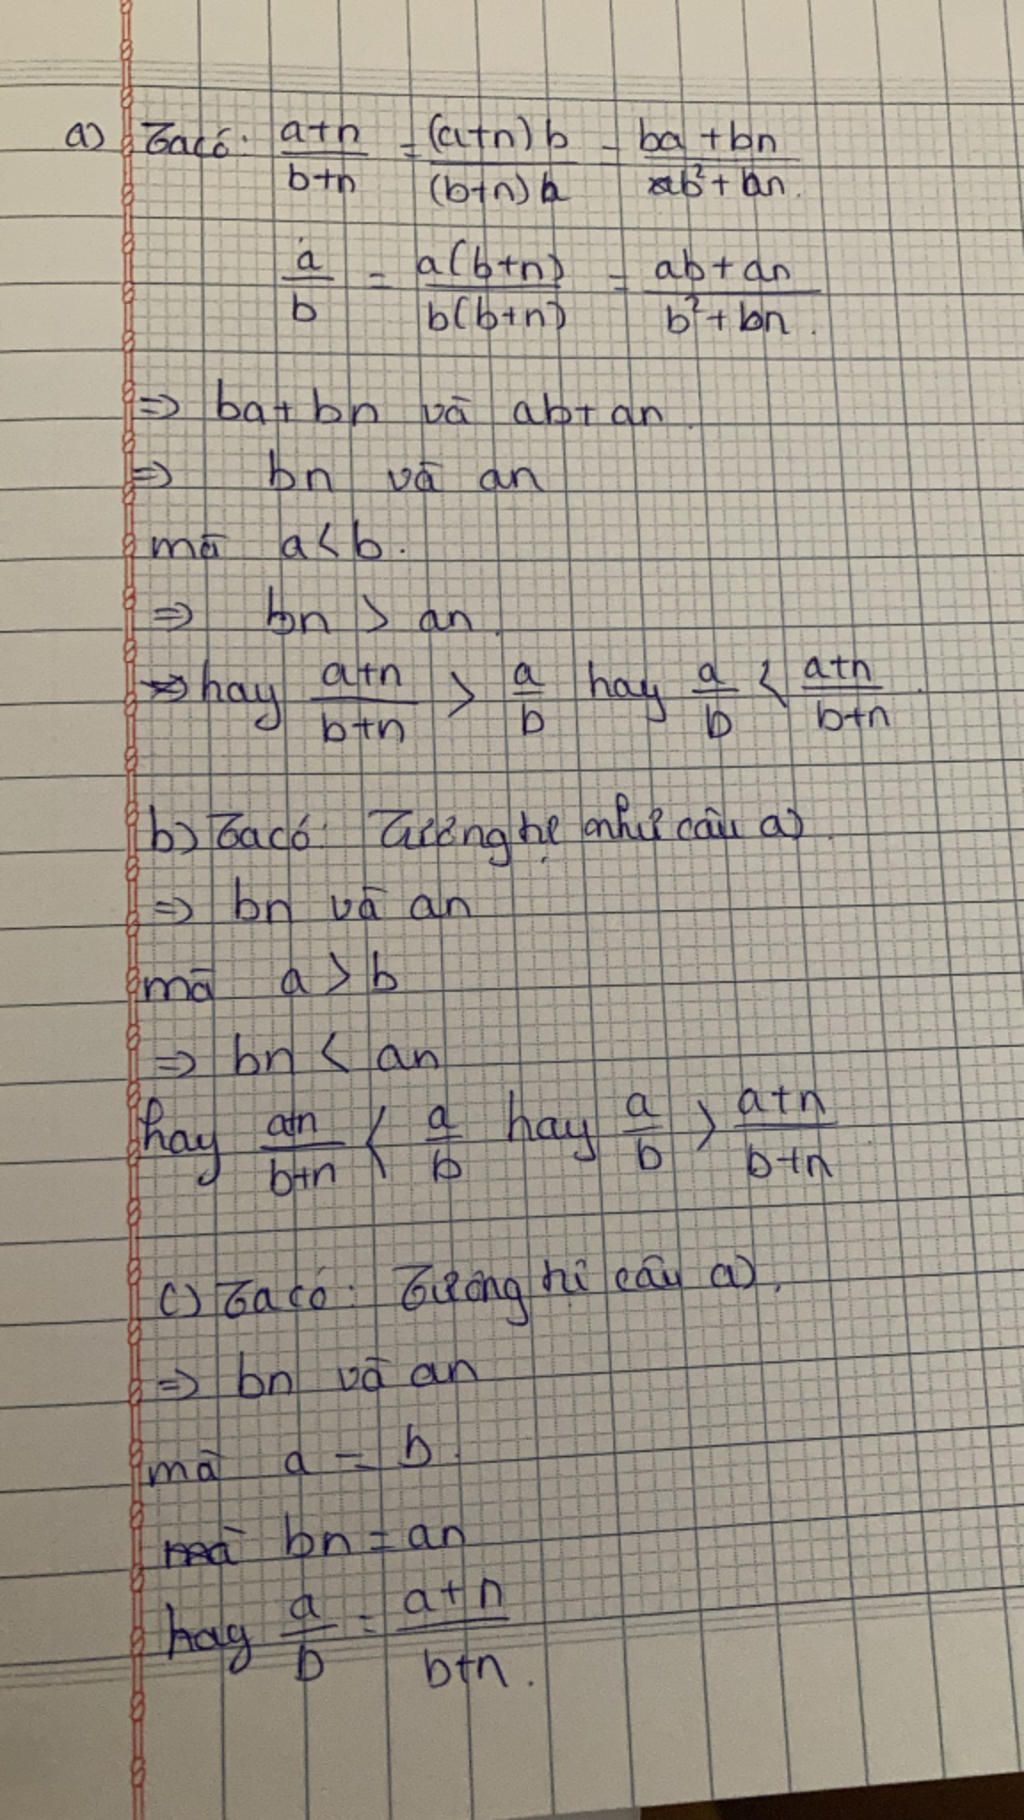 a) Ta có: a+n/b+n = (a+n)b/(b+n)b = ba+bn/b²+bn.
a/b = a(b+n)/b(b+n) = ab+an/b²+bn.
=> ba+bn và ab+an.
=> bn và an
mà a<b.
=> bn > an.
hay a+n/b+n > a/b hay a/b < a+n/b+n.
b) Ta có: Tương tự như câu a)
=> bn và an
mà a>b
=> bn < an
hay a+n/b+n < a/b hay a/b > a+n/b+n
c) Ta có: Tương tự câu a).
=> bn và an
mà a = b.
mà bn = an
hay a/b = a+n/b+n.